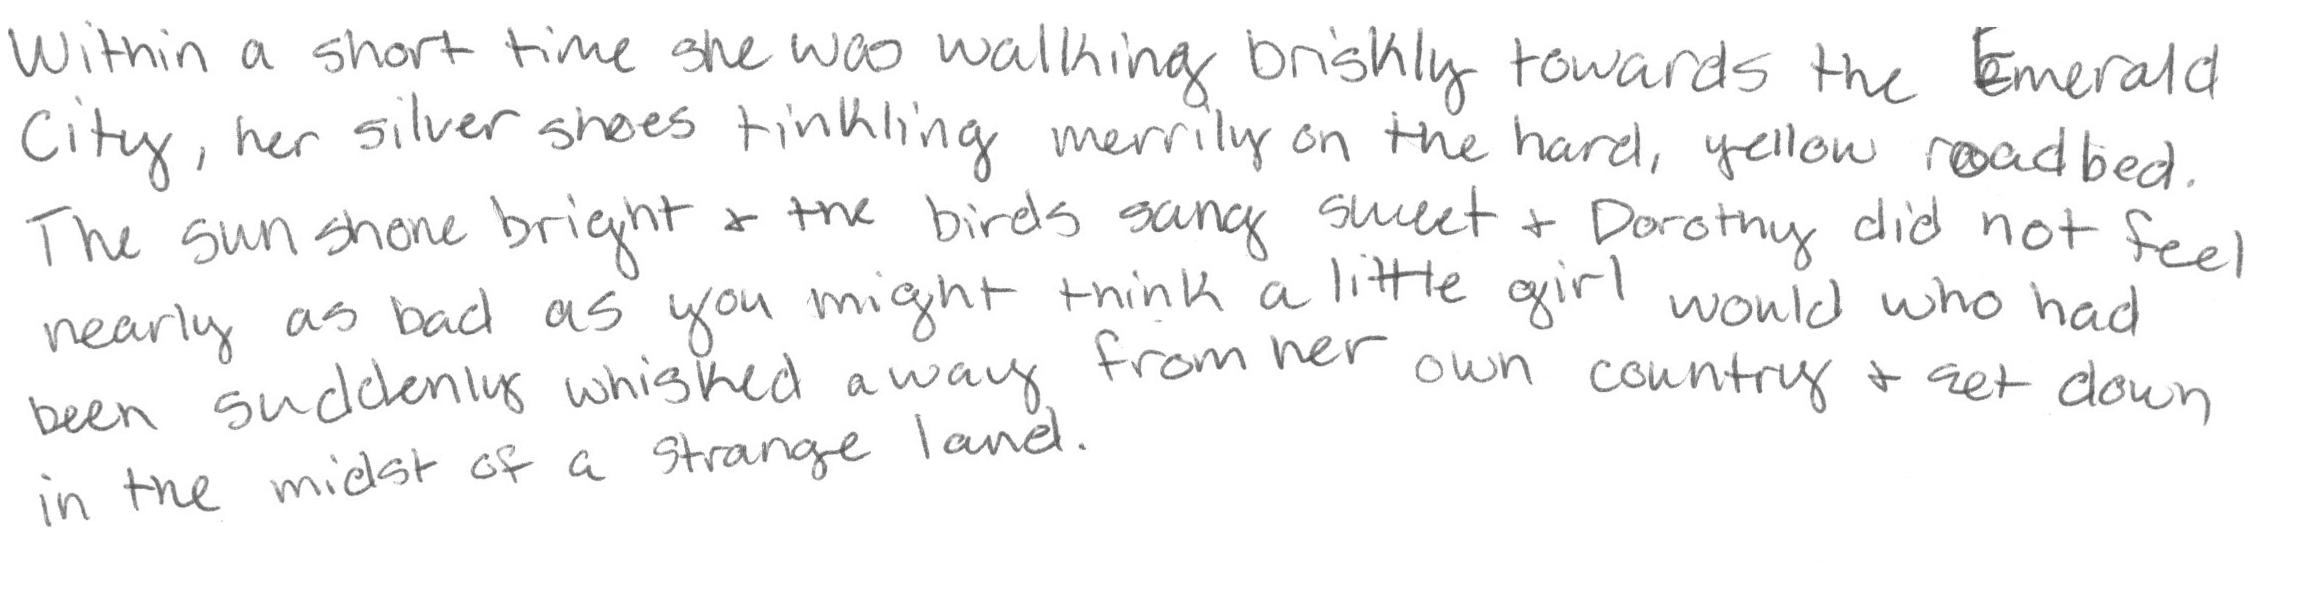 Within a short time she was walking briskly towards the Emerald
City, her silver shoes tinkling merrily on the hard, yellow roadbed.
The sun shone bright + the birds sang sweet + Dorothy did not feel
nearly as bad as you might think a little girl would who had
been suddenly whisked away from her own country + set down
in the midst of a strange land.